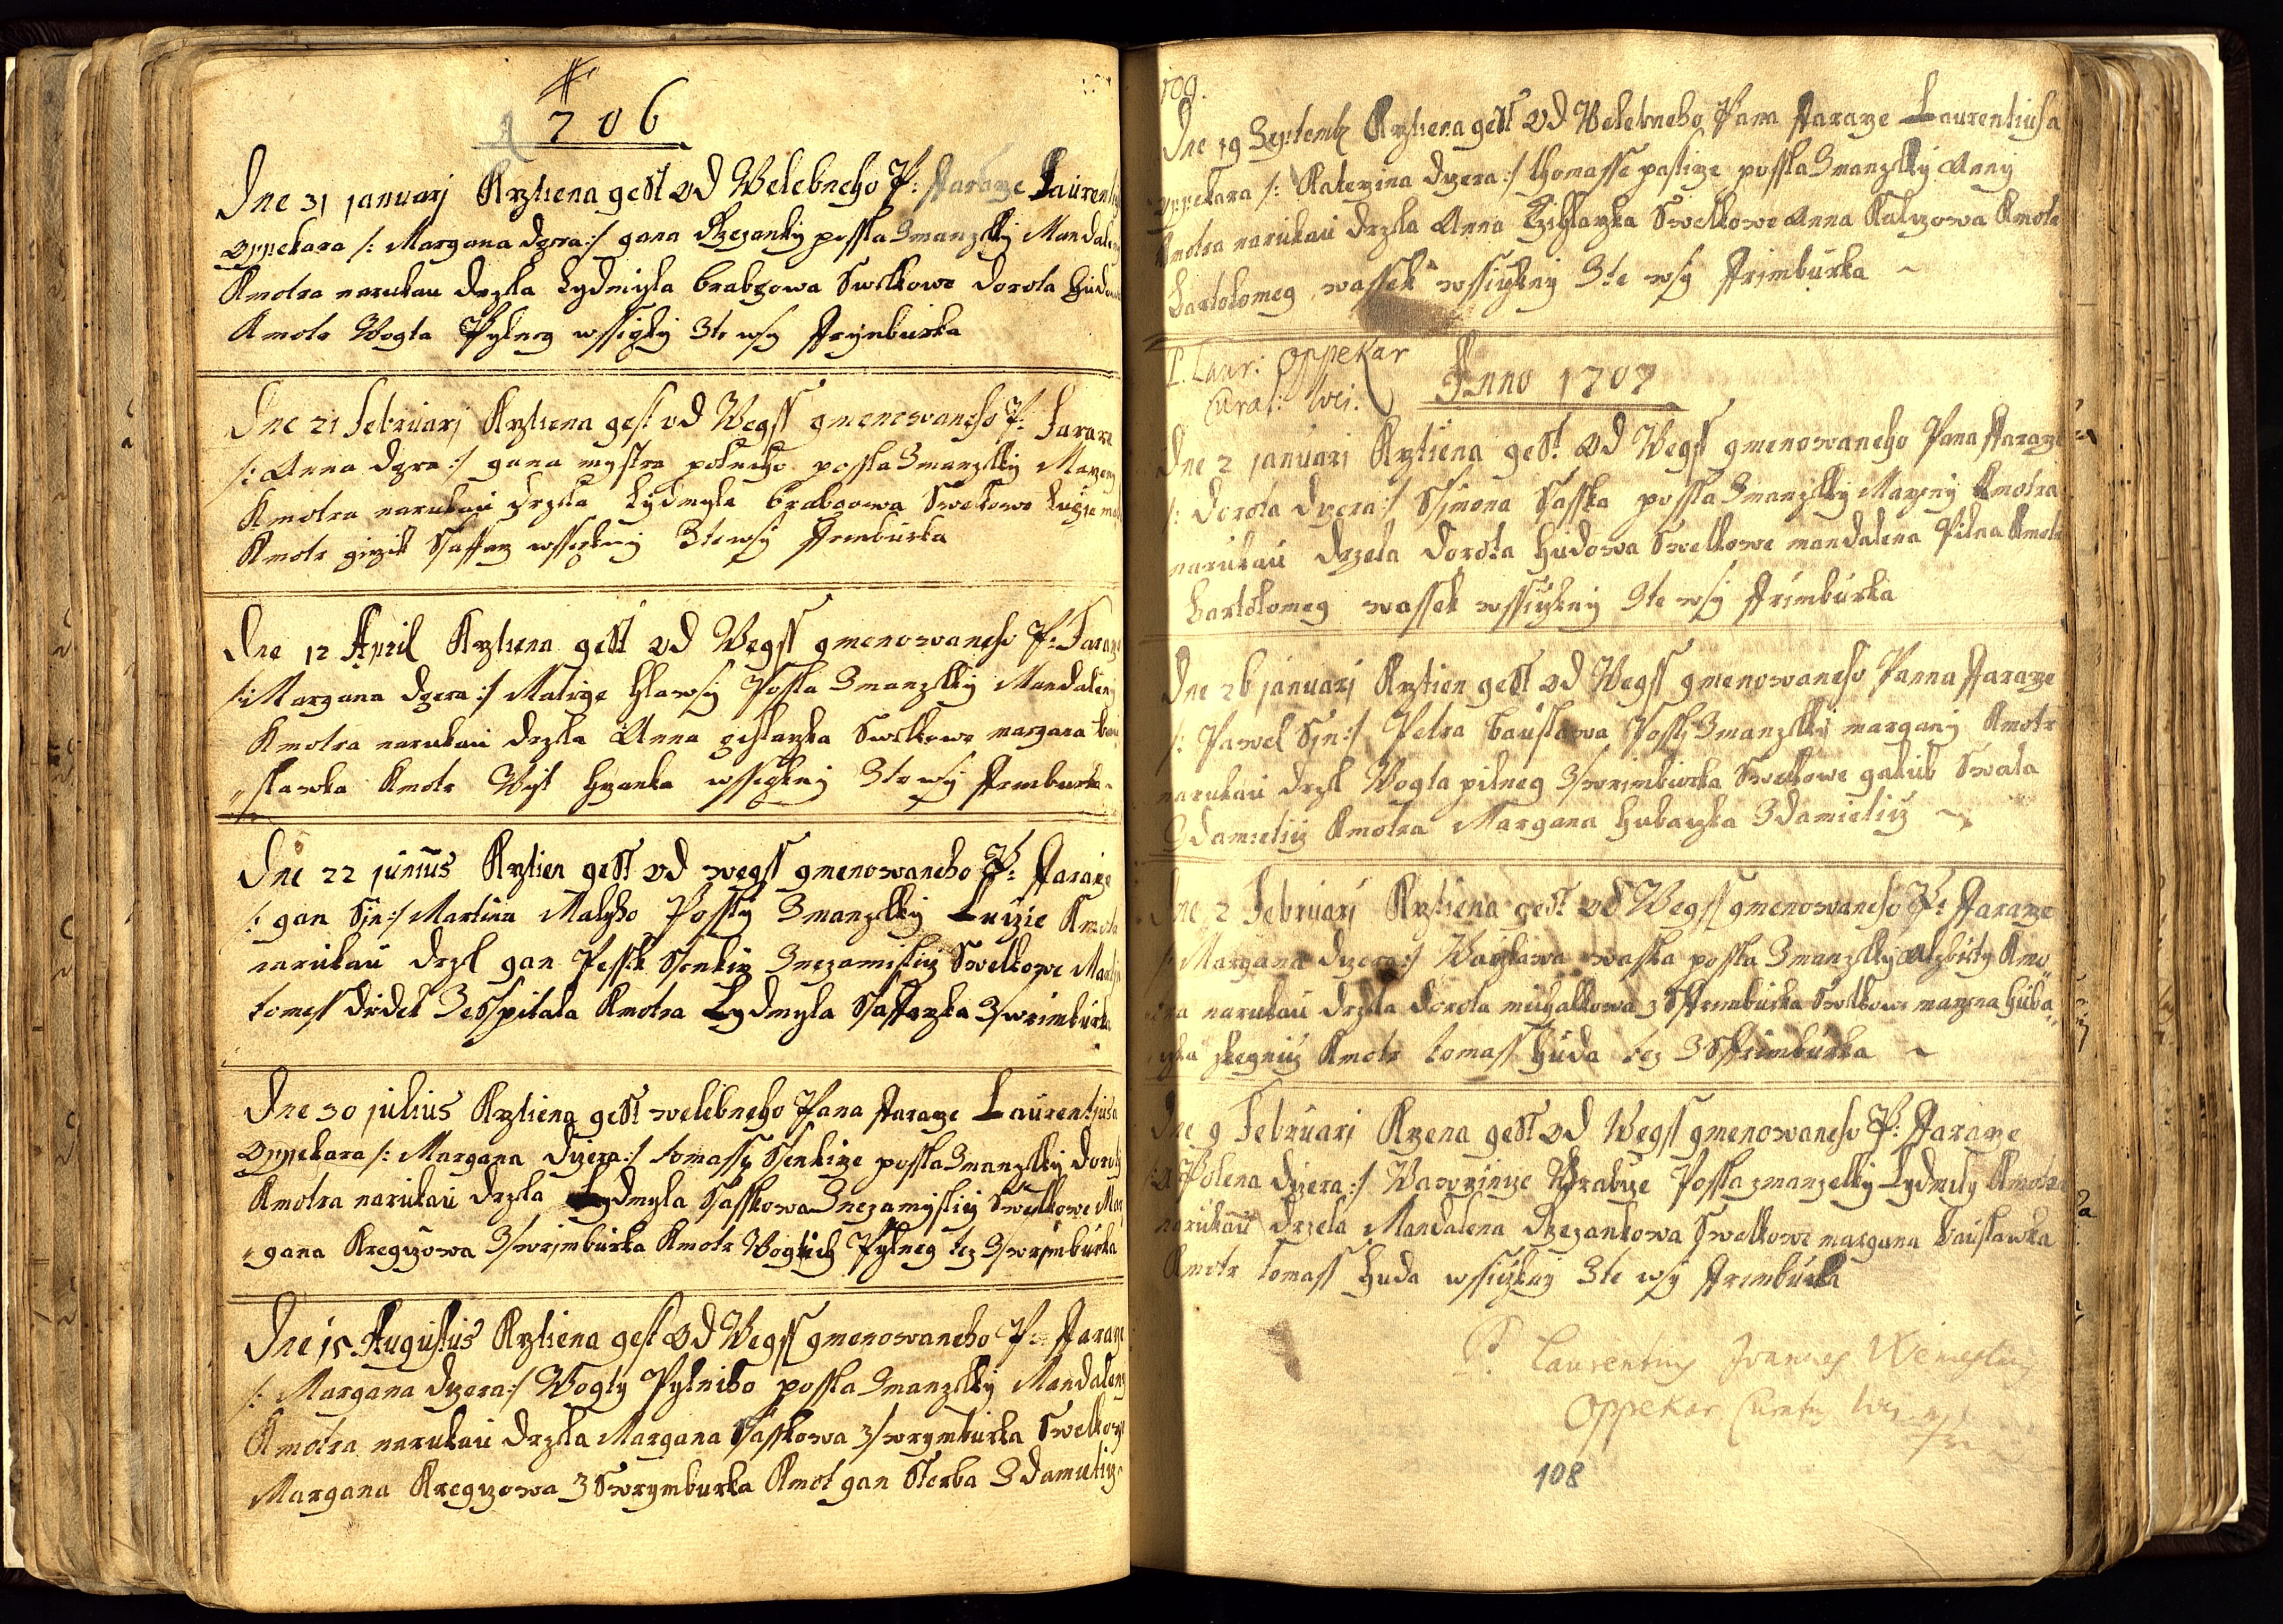 1706
Dne 31 januarj Krztiena gest od Welebneho P: Faraze Laurenti
Oppekara /: Margana dzera :/ gana Rzezanky possla Zmanzelky Mandale
Kmotra narukau drzela Lydmyla brabzowa Swelkowe dorota Hudo
Kmotr Wogta Pylneg wssigky Zte wsy
Dne 21 Februarj Krztiena gest od Wegss gmenowaneho P: Faraze
/: Anna dzera :/ gana mystra polneho possla Zmanzelky Mazeny
Kmotra narukau drzela Lydmyla brabcowa Swelkowe
Kmotr girzik Saffarz wssigkny Zte wsy Frimburka
Dne 12 April Krztiena gest od Wegss gmenowaneho P: Faraze
/: Margana dzera :/ Matige Hlawsy Possla Zmanzelky Mandaleny
Kmotra narukau drzela Anna Swelkowe margana bau
„slawka Kmotr Wyt wssigkny Zte wsy Frimburka
Dne 22 junius Krztien gest od wegss gmenowaneho P: Faraze
/: gan Sjn :/ Martina Maleho Possly Zmanzelky Luizie Kmotr
narukau drzel gan Pessek Ssenkirz Znezamisliz Swelkowe
tomass dudek Zesspitala Kmotra Lydmyla Saffarzka Z/wrimburka
Dne 30 julius Krztiena gest welebneho Pana Faraze Laurentiusa
Oppekara /: Margana dizera :/ tomassy Ssenkirze possla Zmanzelky doroty
Kmotra narukau drzela Lydmyla Sasskowa Znezamysliz Swelkowe Mar
„gana Kregizowa Z/wrimburka Kmotr Pylneg tez Z/wrimburka
Dne 15 Augustus Krztiena gest od Wegss gmenowaneho P: Faraze
/: Margana dizera :/ Wogty Pylniho possla Zmanzelky Mandaleny
Kmotra narukau drzela Margana Sasskowa Z/wrymburka Swelkowe
Margana Kregizowa Z Swrymburka Kmot gan Sterba Zdamieliz
109.
Dne 19 Septemb Krztiena gest od Welebneho Pana Faraze Laurentiusa
Oppekara /: Katerzina dizera :/ thomasse pastirze possla Zmanzelky Anny
Kmotra narukau drzela Anna Swelkowe Anna Kalizowa Kmotr
Bartolomeg wassek wssickny Zte wsy Frimburka ~
P. Laur: Oppekar
Curat: loci.
Anno 1707
Dne 2 januarj Krztiena gest od Wegss gmenowaneho Pana Faraze
/: dorota dizera :/ Ssimona Sasska possla Zmanzelky Mazeny Kmotra
narukau drzela dorota hudowa Swelkowe mandalena Pilna Kmotr
Bartolomeg wassek wssickny Zte wsy Frimburka
Dne 26 januarj Krztien gest od Wegss gmenowaneho Panna Faraze
/: Pawel Sjn :/ Petra bauslawa Possly Zmanzelky margany Kmotr
narukau drzel Wogta pilneg Z/wrimburka Swelkowe gakub Swata
Zdamieliz Kmotra Margana hubarzka Zdamieliz ~
Dne 2 Februarj Krztiena gest od Wegss gmenowaneho P: Faraze
/: Margana dizera :/ Waczlawa waska possla Zmanzelky alzbiety Kmo„
tra narukau drzela dorota michalkowa z Sfrimburka Swelkowe mazena huba„
rzka Kmotr tomass huda tez Z Sfrimburka ~
Dne 9 Februarj Krzena gest od Wegss gmenowaneho P: Faraze
/: Apolena dizera :/ Wawrzinze Wrabze Possla zmanzelky Lydmily Kmotra
narukau drzela Mandalena Rzezankowa Swelkowe margana bauslawka
Kmotr tomass huda wssickny Zte wsy Frimburka
P. Laurentius Joannes Wencesl
Oppekar Curatus loci
108